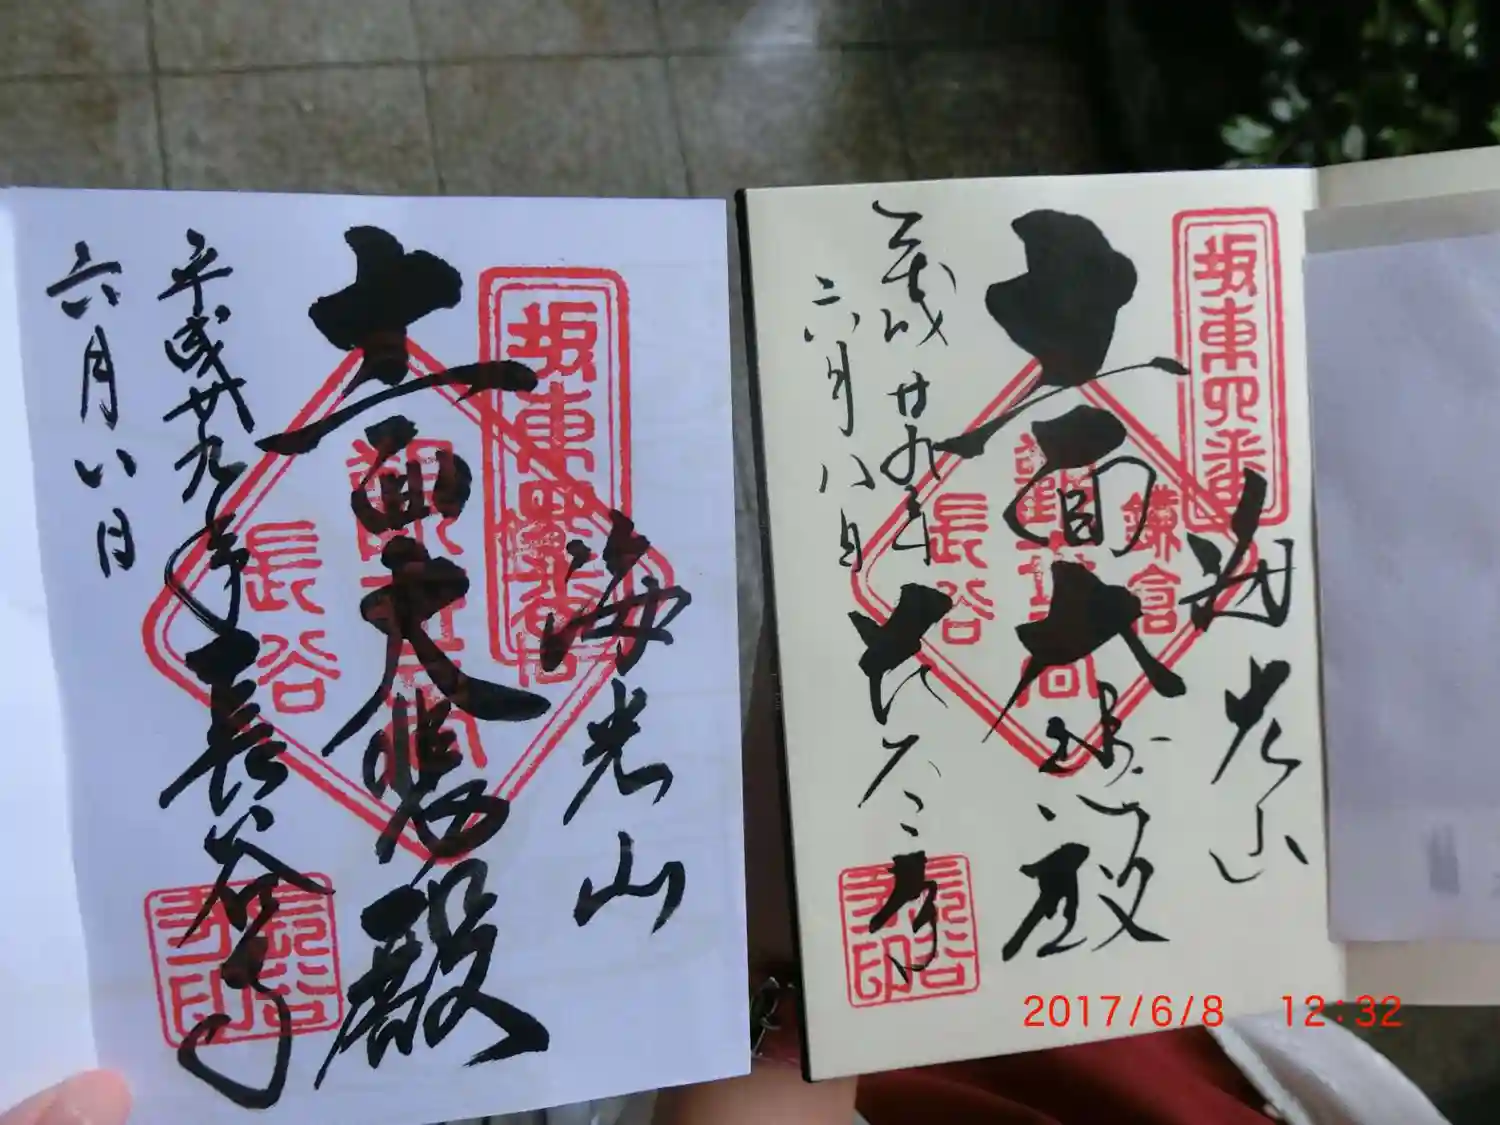 坂東四番
海光山
十一面大悲殿
長谷
平成廿九年
六月八日
長谷寺
長谷寺印
坂東四番
海光山
十一面大悲殿
鎌倉
長谷
平成廿九年
六月八日
長谷寺
長谷寺印
2017/6/8 12:32